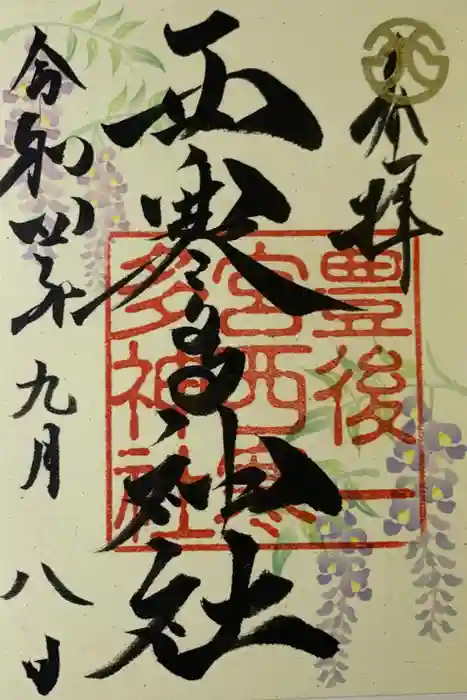 奉拝
豊後一
宮西寒
多神社
西寒多神社
令和四年
九月
八日